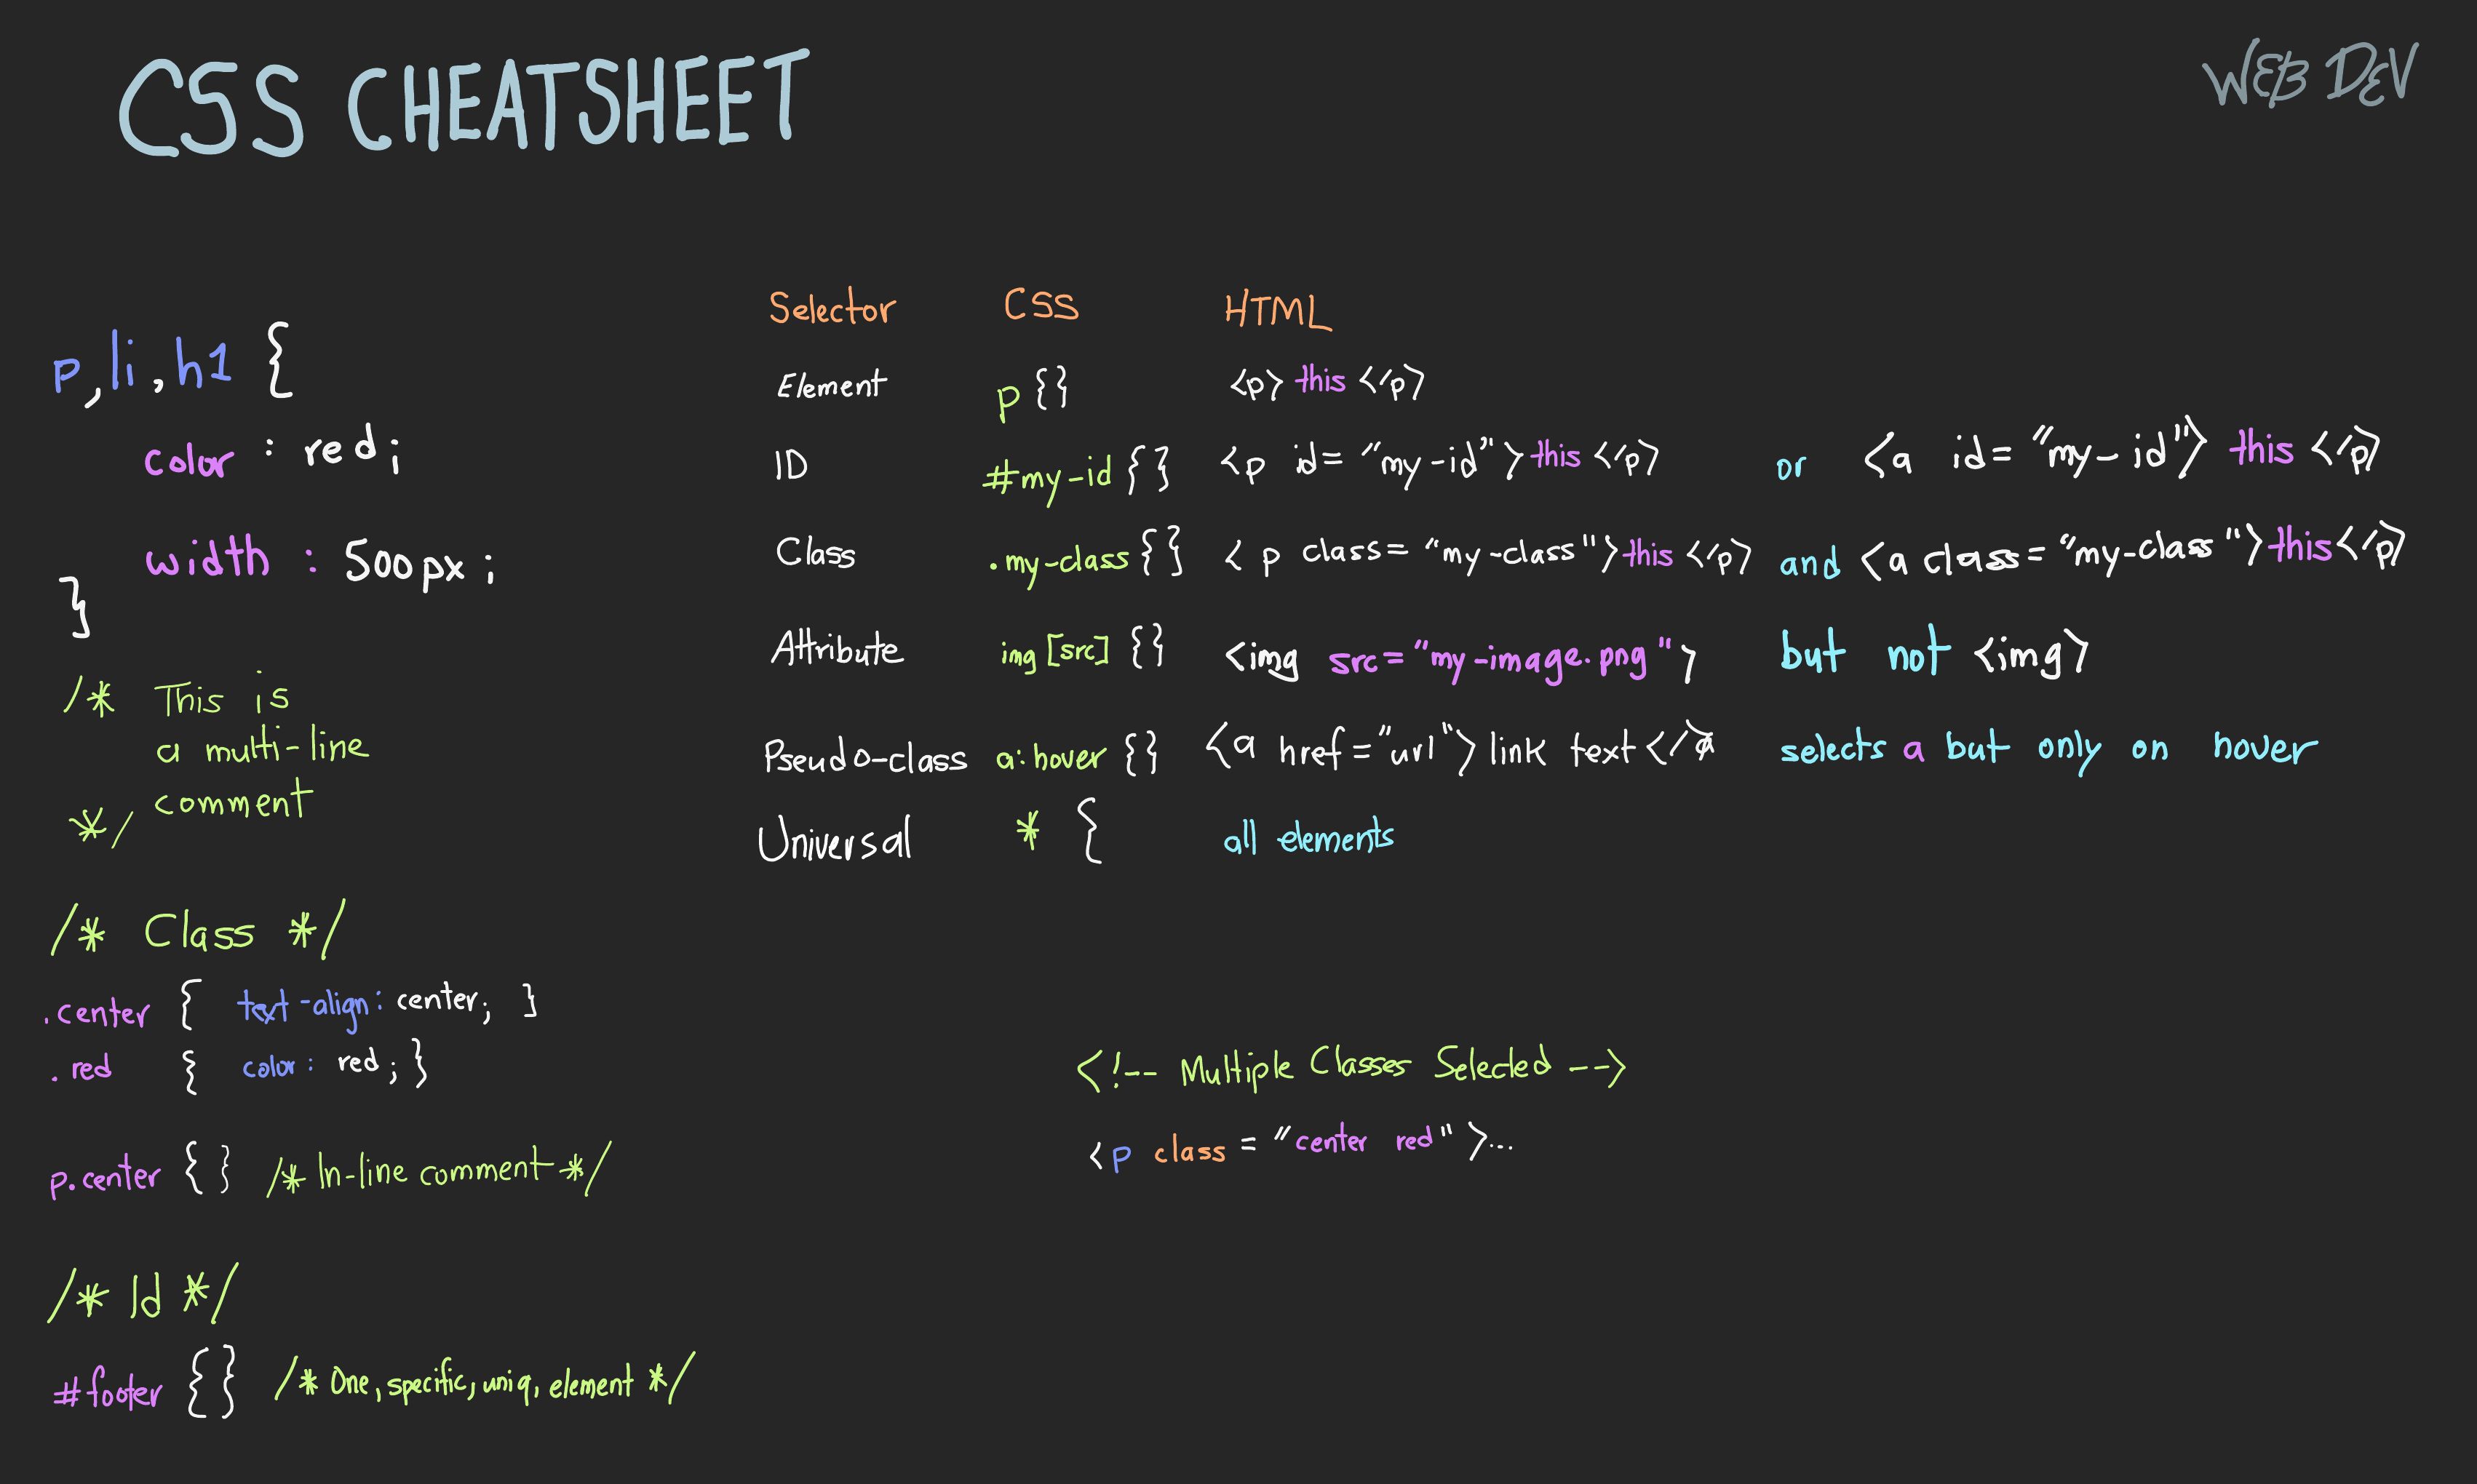 CSS CHEATSHEET
WEB DEV
p, li, h1 {
color : red ;
width : 500px ;
}
/* This is
a multi-line
comment
*/
/* Class */
.center { text-align: center; }
.red { color: red; }
p.center { } /* In-line comment */
/* Id */
#footer { } /* One, specific, uniq, element */
Selector CSS HTML
Element p {} <p> this </p>
ID #my-id { } <p id= "my-id"> this </p> or <a id= "my-id"> this </p>
Class .my-class { } < p class= "my-class"> this </p> and <a class= "my-class"> this </p>
Attribute img [src] {} <img src="my-image.png"> but not <img>
Pseudo-class a:hover {} <a href="url"> link text </a selects a but only on hover
Universal * { all elements
<!-- Multiple Classes Selected -->
<p class = "center red" >...